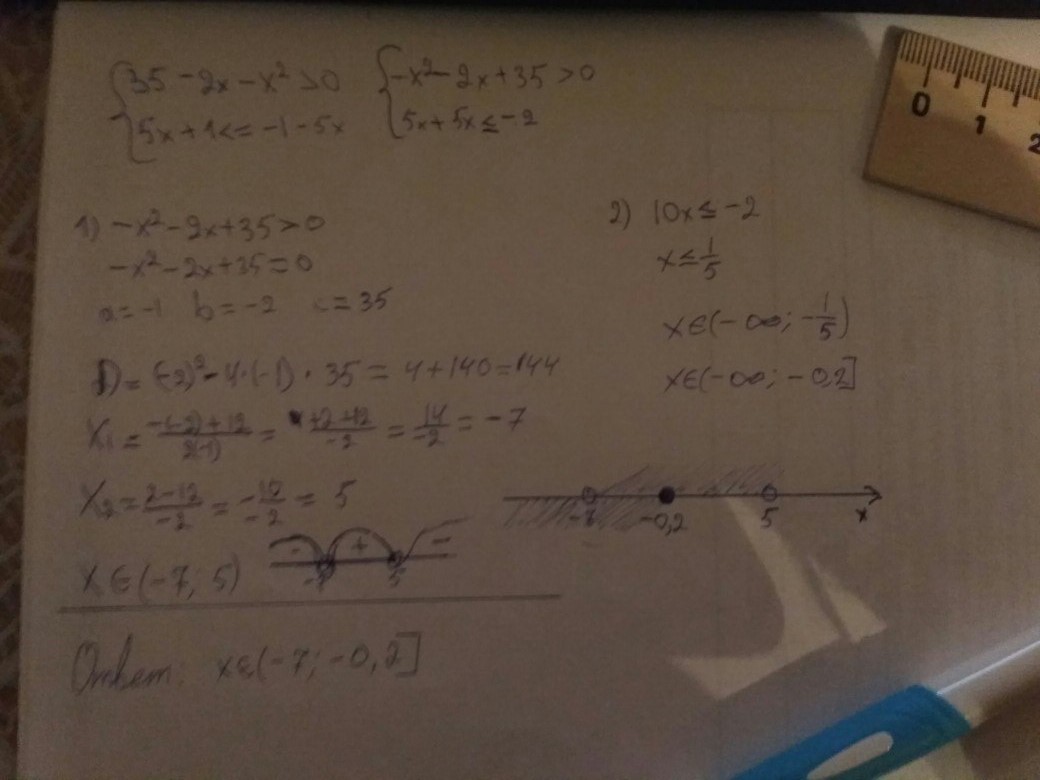 {35 - 2x - x² > 0
{5x + 1 <= -1 - 5x
{-x² - 2x + 35 > 0
{5x + 5x ≤ -2
1) -x² - 2x + 35 > 0
-x² - 2x + 35 = 0
a = -1 b = -2 c = 35
D = (-2)² - 4·(-1)·35 = 4 + 140 = 144
X₁ = (-(-2) + 12)/(2(-1)) = (+2 + 12)/(-2) = 14/(-2) = -7
X₂ = (2 - 12)/(-2) = -10/(-2) = 5
X ∈ (-7; 5)
- + -
-7 5
2) 10x ≤ -2
x ≤ 1/5
x ∈ (-∞; -1/5)
x ∈ (-∞; -0,2]
-7 -0,2 5 x
Ответ: x ∈ (-7; -0,2]
0 1 2